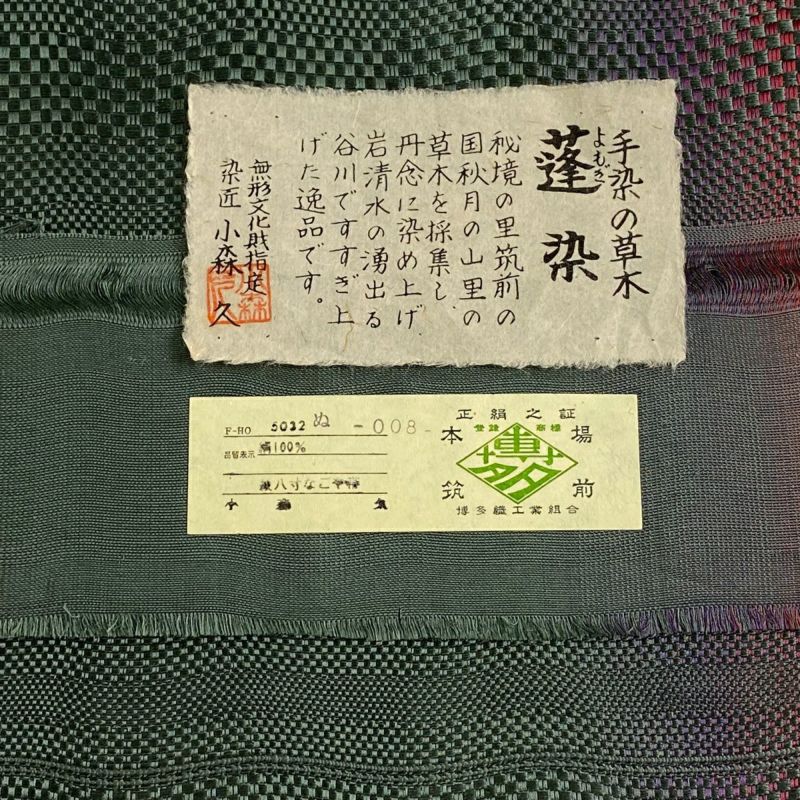 手染の草木
よもぎ
蓬染
秘境の里筑前の
国秋月の山里の
草木を採集し
丹念に染め上げ
岩清水の湧出る
谷川ですすぎ上
げた逸品です。
無形文化財指定
染匠 小森 久
F-HO 5032 ぬ -008-
品質表示 絹100%
八寸なごや帯
小森 久
正絹之証
登録 商標
本場
博多
筑前
博多織工業組合